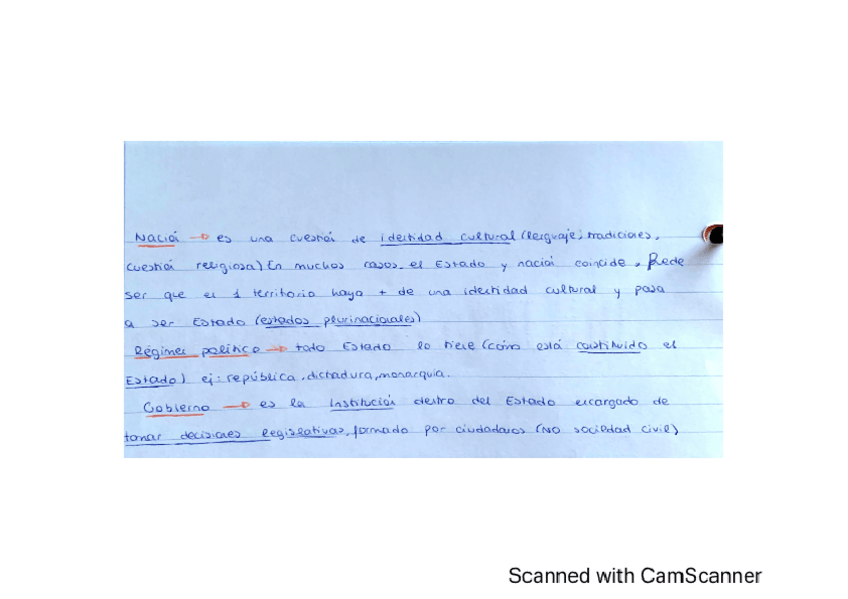 Nación → es una cuestión de identidad cultural (lenguaje, tradiciones,
cuestión religiosa) En muchos casos, el Estado y nación coincide, Puede
ser que en 1 territorio haya + de una identidad cultural y pasa
a ser Estado (estados plurinacionales)
Régimen político → todo Estado lo tiene (cómo está constituido el
Estado) ej: república, dictadura, monarquia.
Gobierno → es la institución dentro del Estado encargado de
tomar decisiones legislativas, formado por ciudadanos (NO sociedad civil)
Scanned with CamScanner